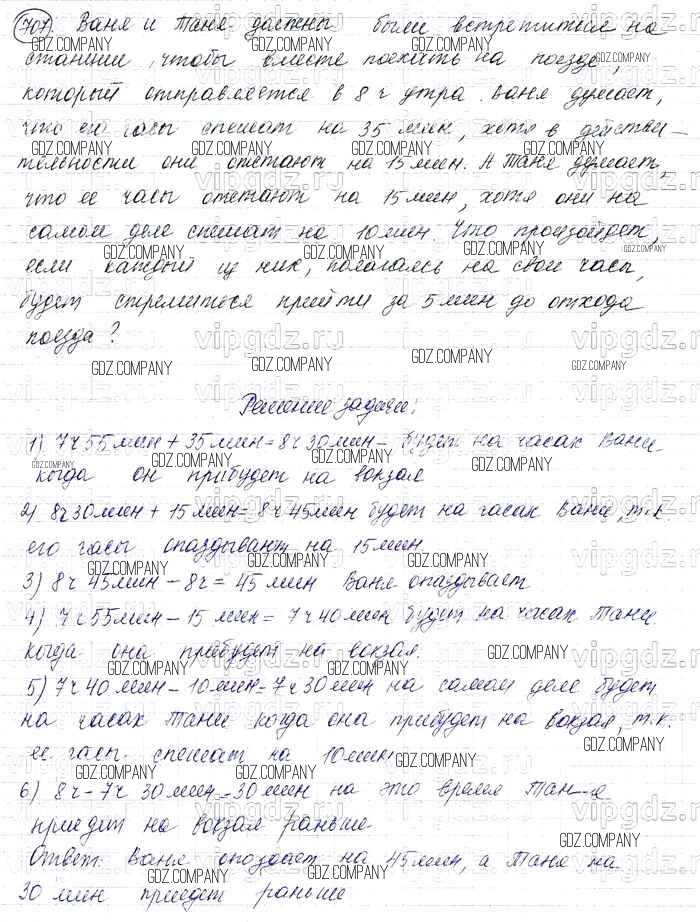 707 Ваня и Таня должны были встретиться на
станции, чтобы вместе поехать на поезде,
который отправляется в 8 ч утра. Ваня думает,
что его часы спешат на 35 мин, хотя в действи-
тельности они отстают на 15 мин. А Таня думает,
что ее часы отстают на 15 мин, хотя они на
самом деле спешат на 10 мин. Что произойдет,
если каждый из них, полагаясь на свои часы,
будет стремиться прийти за 5 мин до отхода
поезда?
Решение задачи:
1) 7ч 55мин + 35мин = 8ч 30мин - будет на часах Вани
когда он прибудет на вокзал
2) 8ч 30мин + 15мин = 8ч 45мин будет на часах Вани, т.к.
его часы опаздывают на 15 мин
3) 8ч 45мин - 8ч = 45 мин Ваня опаздывает
4) 7ч 55мин - 15 мин = 7ч 40мин будет на часах Тани
когда она прибудет на вокзал.
5) 7ч 40мин - 10мин = 7ч 30мин на самом деле будет
на часах Тани когда она прибудет на вокзал, т.к.
ее часы спешат на 10 мин
6) 8ч - 7ч 30мин = 30мин на это время Тан-я
приедет на вокзал раньше
Ответ: Ваня опоздает на 45мин, а Таня на
30 мин приедет раньше
GDZ.COMPANY
vipgdz.ru